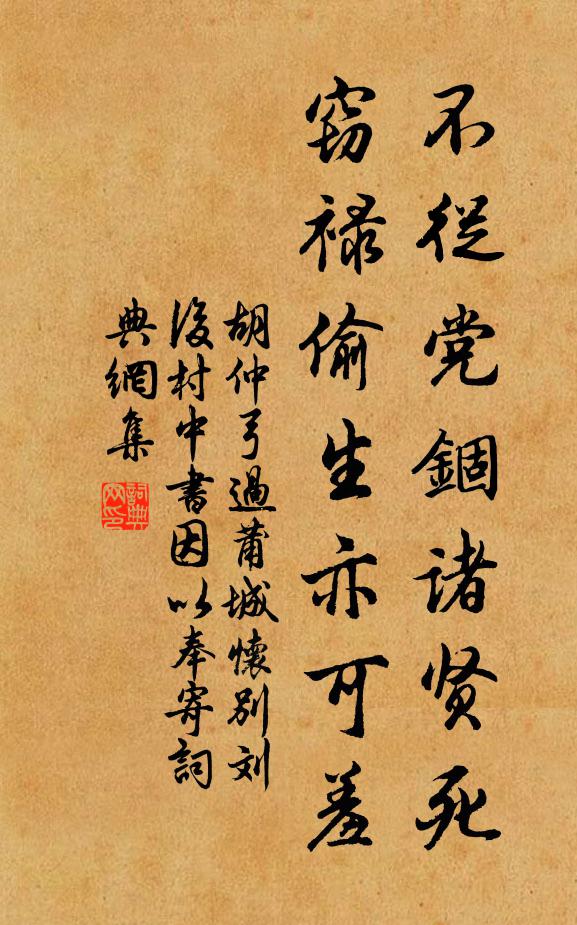 不從党錮诸贤死
窃禄偷生亦可羞
胡仲弓過莆城懷别刘
後村中書因以奉寄詞
典網集
詞典網印